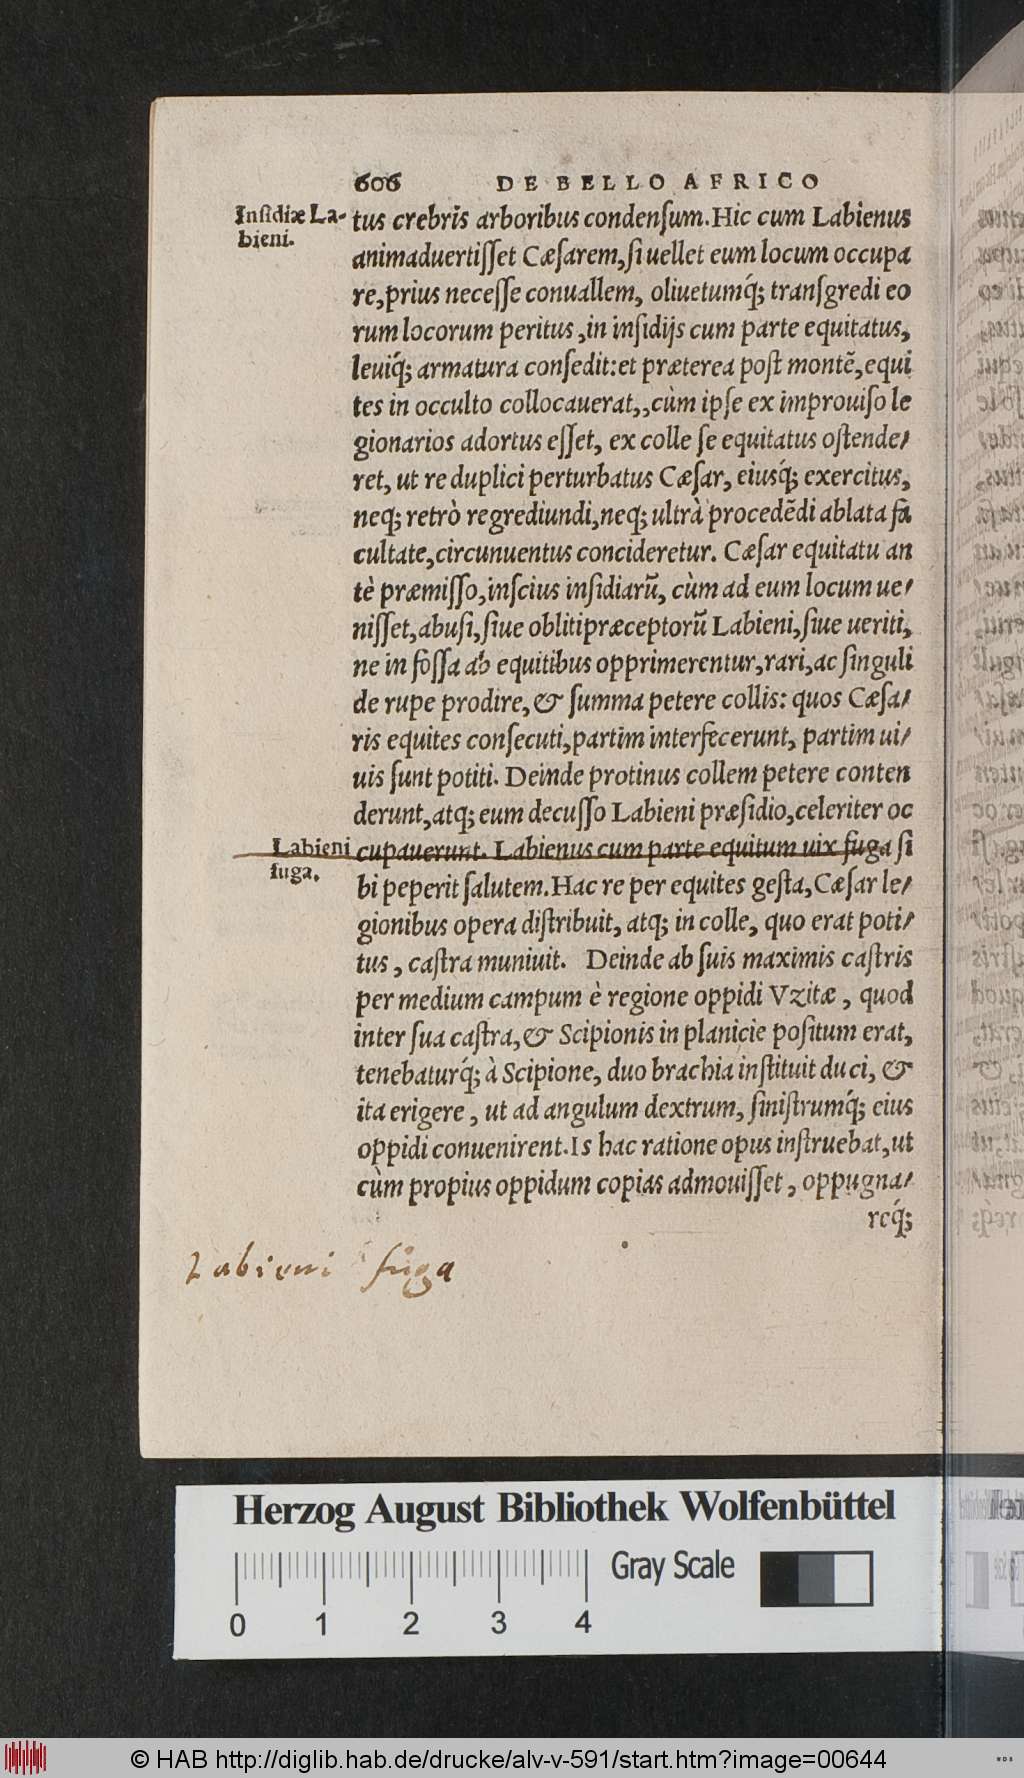 606 DE BELLO AFRICO
Insidiæ La-
bieni.
tus crebris arboribus condenſum. Hic cum Labienus
animaduertiſſet Cæſarem, ſi uellet eum locum occupa
re, prius neceſſe conuallem, oliuetumq́; tranſgredi eo
rum locorum peritus, in inſidijs cum parte equitatus,
leuiq́; armatura conſedit: et præterea poſt montē, equi
tes in occulto collocauerat,, cùm ipſe ex improuiſo le
gionarios adortus eſſet, ex colle ſe equitatus oſtende/
ret, ut re duplici perturbatus Cæſar, eiusq́; exercitus,
neq; retrò regrediundi, neq; ultrà procedēdi ablata fa
cultate, circunuentus concideretur. Cæſar equitatu an
tè præmiſſo, inſcius inſidiarū, cùm ad eum locum ue/
niſſet, abuſi, ſiue obliti præceptorū Labieni, ſiue ueriti,
ne in foſſa ab equitibus opprimerentur, rari, ac ſinguli
de rupe prodire, & ſumma petere collis: quos Cæſa/
ris equites conſecuti, partim interfecerunt, partim ui/
uis ſunt potiti. Deinde protinus collem petere conten
derunt, atq; eum decuſſo Labieni præſidio, celeriter oc
Labieni
fuga.
cupauerunt. Labienus cum parte equitum uix fuga ſi
bi peperit ſalutem. Hac re per equites geſta, Cæſar le/
gionibus opera diſtribuit, atq; in colle, quo erat poti/
tus, caſtra muniuit. Deinde ab ſuis maximis caſtris
per medium campum è regione oppidi Vzitæ, quod
inter ſua caſtra, & Scipionis in planicie poſitum erat,
tenebaturq́; à Scipione, duo brachia inſtituit duci, &
ita erigere, ut ad angulum dextrum, ſiniſtrumq́; eius
oppidi conuenirent. Is hac ratione opus inſtruebat, ut
cùm propius oppidum copias admouiſſet, oppugna/
req́;
Labieni fuga
Herzog August Bibliothek Wolfenbüttel
Gray Scale
0 1 2 3 4
© HAB http://diglib.hab.de/drucke/alv-v-591/start.htm?image=00644